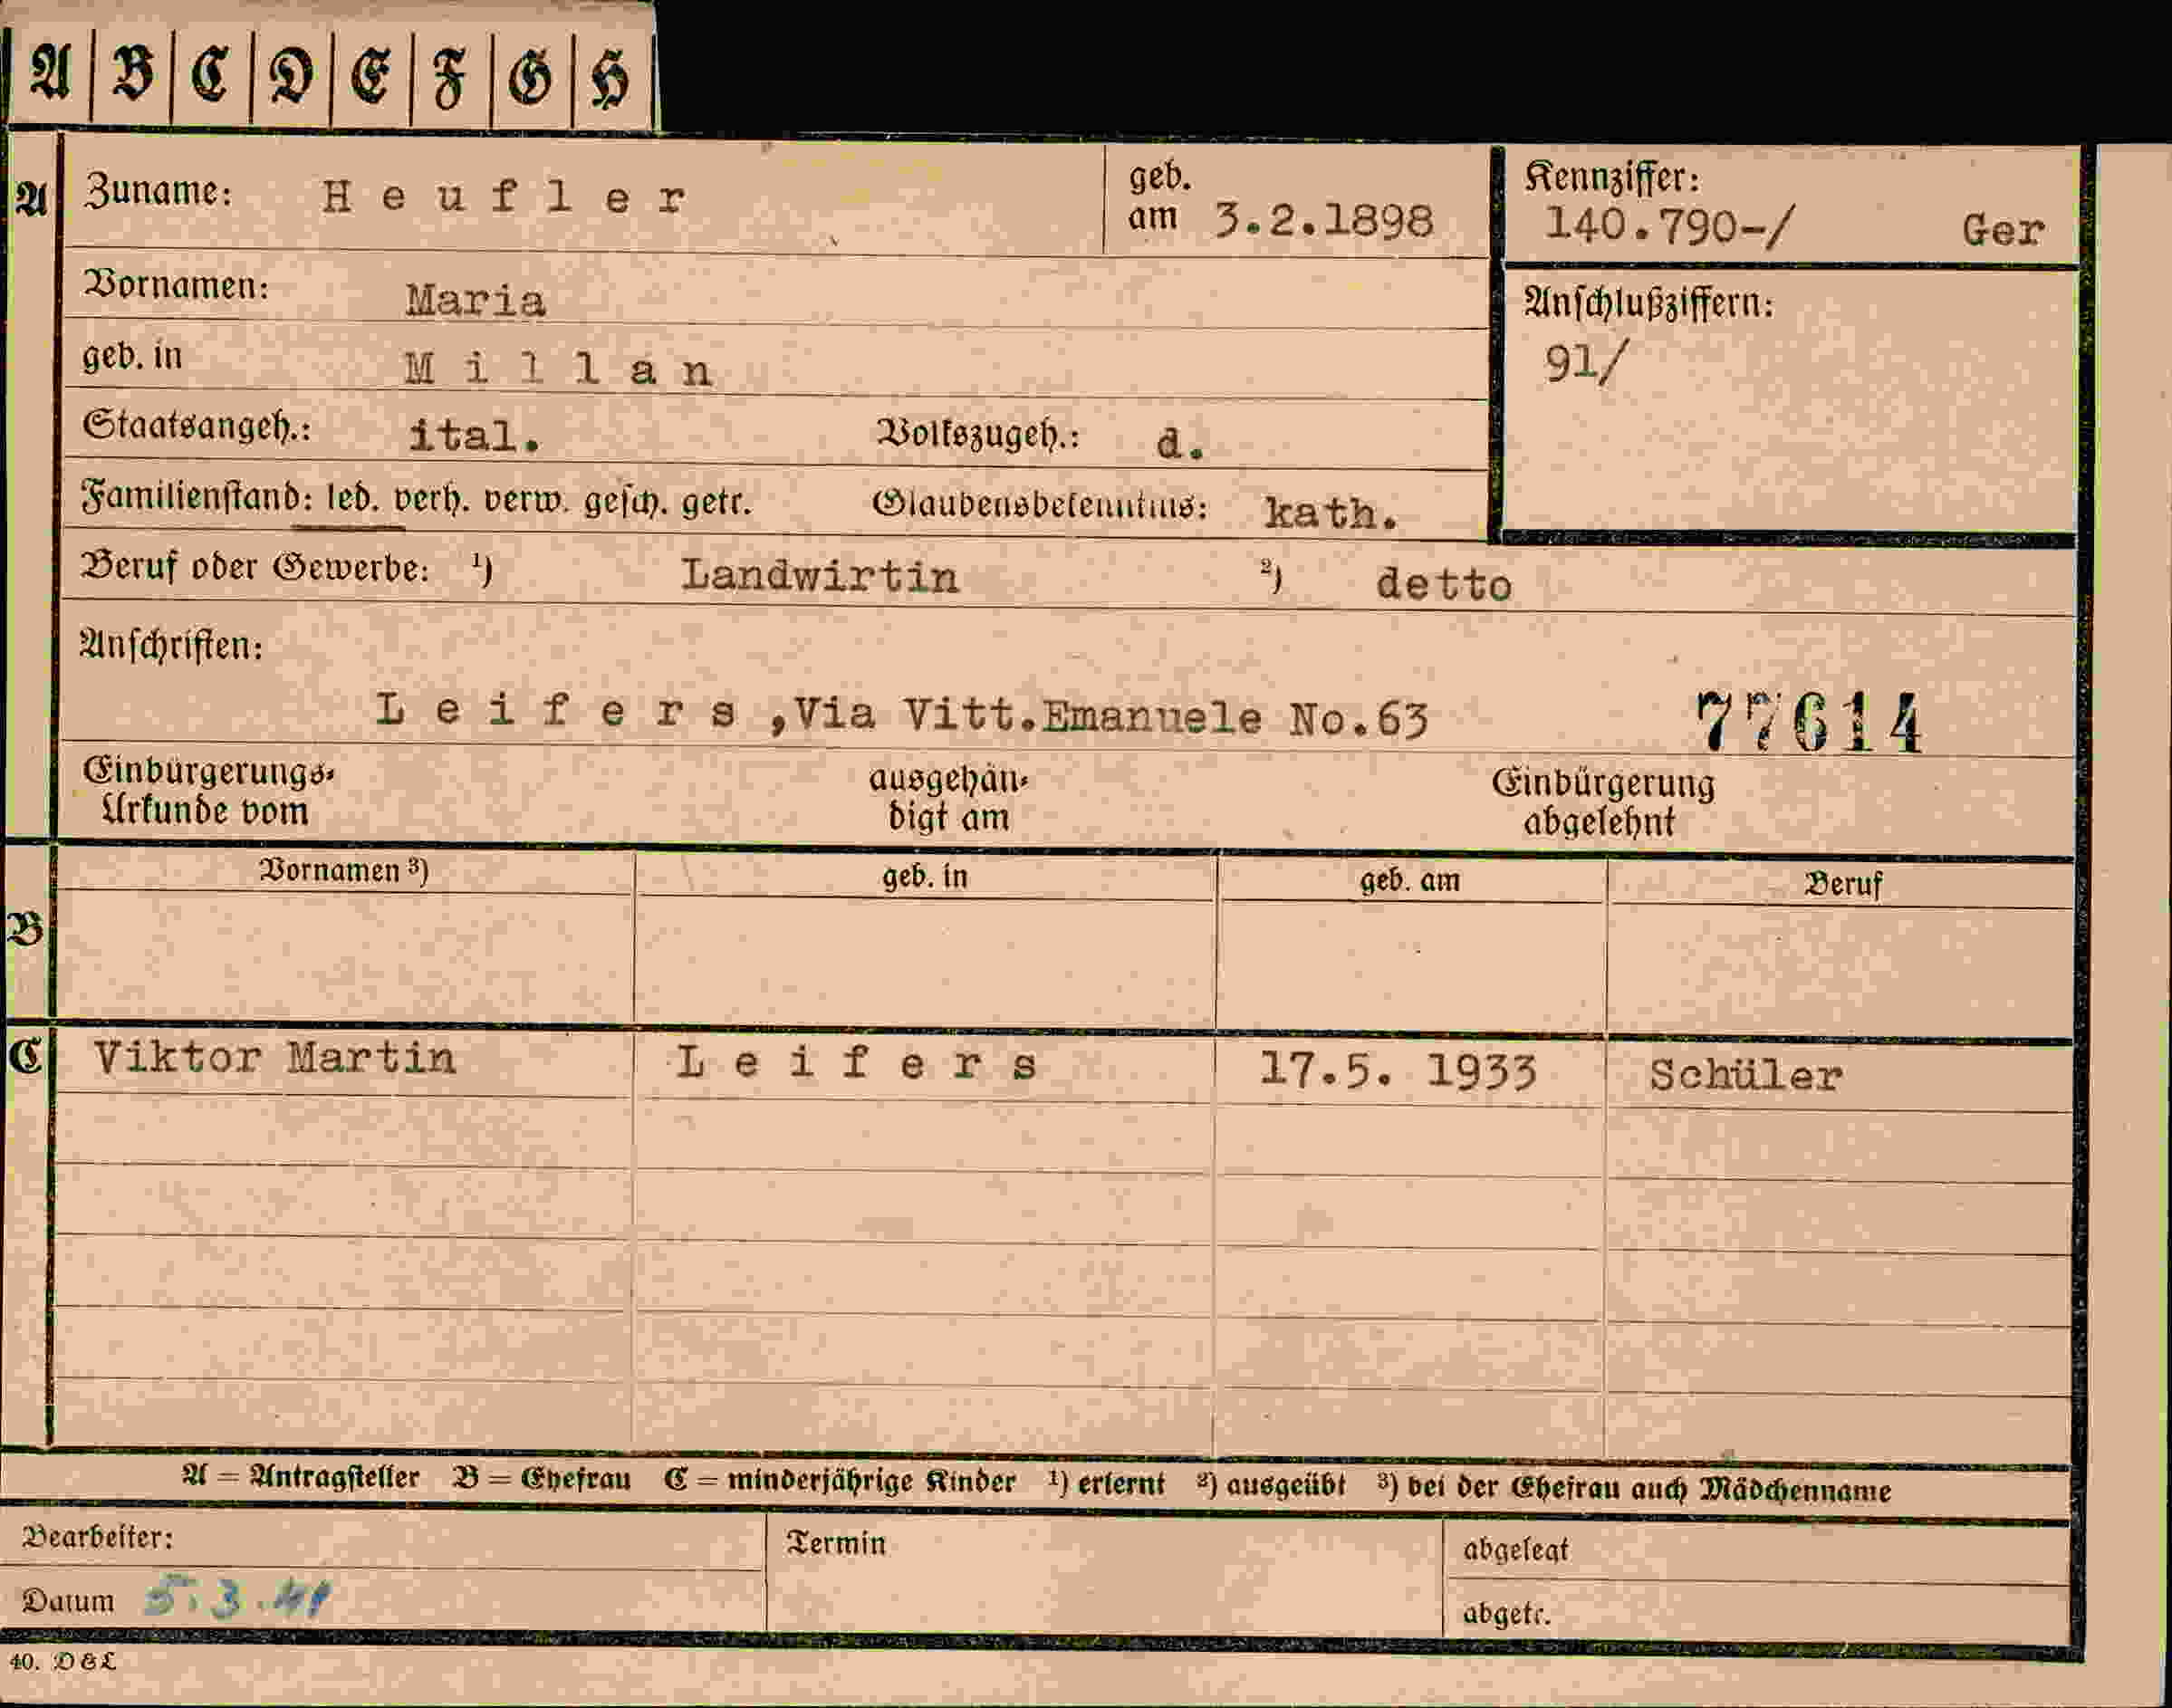 A | B | C | D | E | F | G | H
A Zuname: Heufler geb. am 3.2.1898 Kennziffer: 140.790-/ Ger
Vornamen: Maria Anschlußziffern:
geb. in Millan 91/
Staatsangeh.: ital. Volkszugeh.: d.
Familienstand: led. verh. verw. gesch. getr. Glaubensbekenntnis: kath.
Beruf oder Gewerbe: ¹) Landwirtin ²) detto
Anschriften:
Leifers ,Via Vitt.Emanuele No.63 77614
Einbürgerungs- ausgehän- Einbürgerung
Urkunde vom digt am abgelehnt
Vornamen ³) geb. in geb. am Beruf
B
C Viktor Martin Leifers 17.5. 1933 Schüler
A = Antragsteller B = Ehefrau C = minderjährige Kinder ¹) erlernt ²) ausgeübt ³) bei der Ehefrau auch Mädchenname
Bearbeiter: Termin abgelegt
Datum 5.3.41 abgetr.
40. D & L